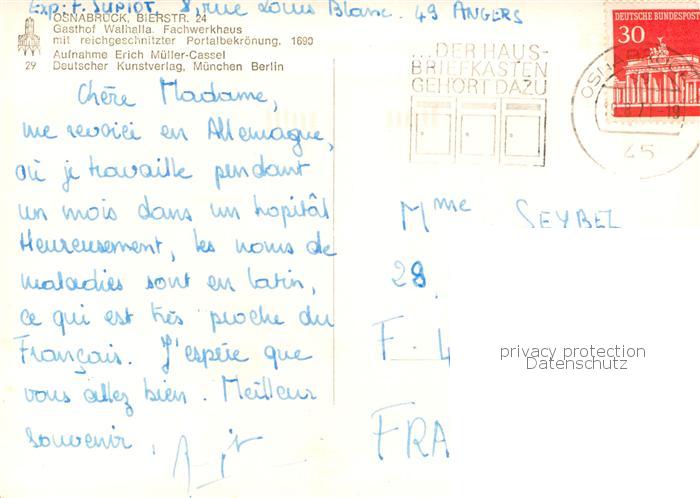 Exp: F. SUPIOT, 8, rue Louis Blanc. 49 ANGERS
OSNABRÜCK, BIERSTR. 24
Gasthof Walhalla. Fachwerkhaus
mit reichgeschnitzter Portalbekrönung. 1690
Aufnahme Erich Müller-Cassel
29 Deutscher Kunstverlag, München Berlin
Chère Madame,
me revoici en Allemagne,
où je travaille pendant
un mois dans un hopitâl
Heureusement, les noms de
maladies sont en latin,
ce qui est très proche du
Français. J'espère que
vous allez bien. Meilleur
souvenir,
...DER HAUS-
BRIEFKASTEN
GEHÖRT DAZU
DEUTSCHE BUNDESPOST
30
45
Mme SEYBEL
28
F. 4
FRA
privacy protection
Datenschutz